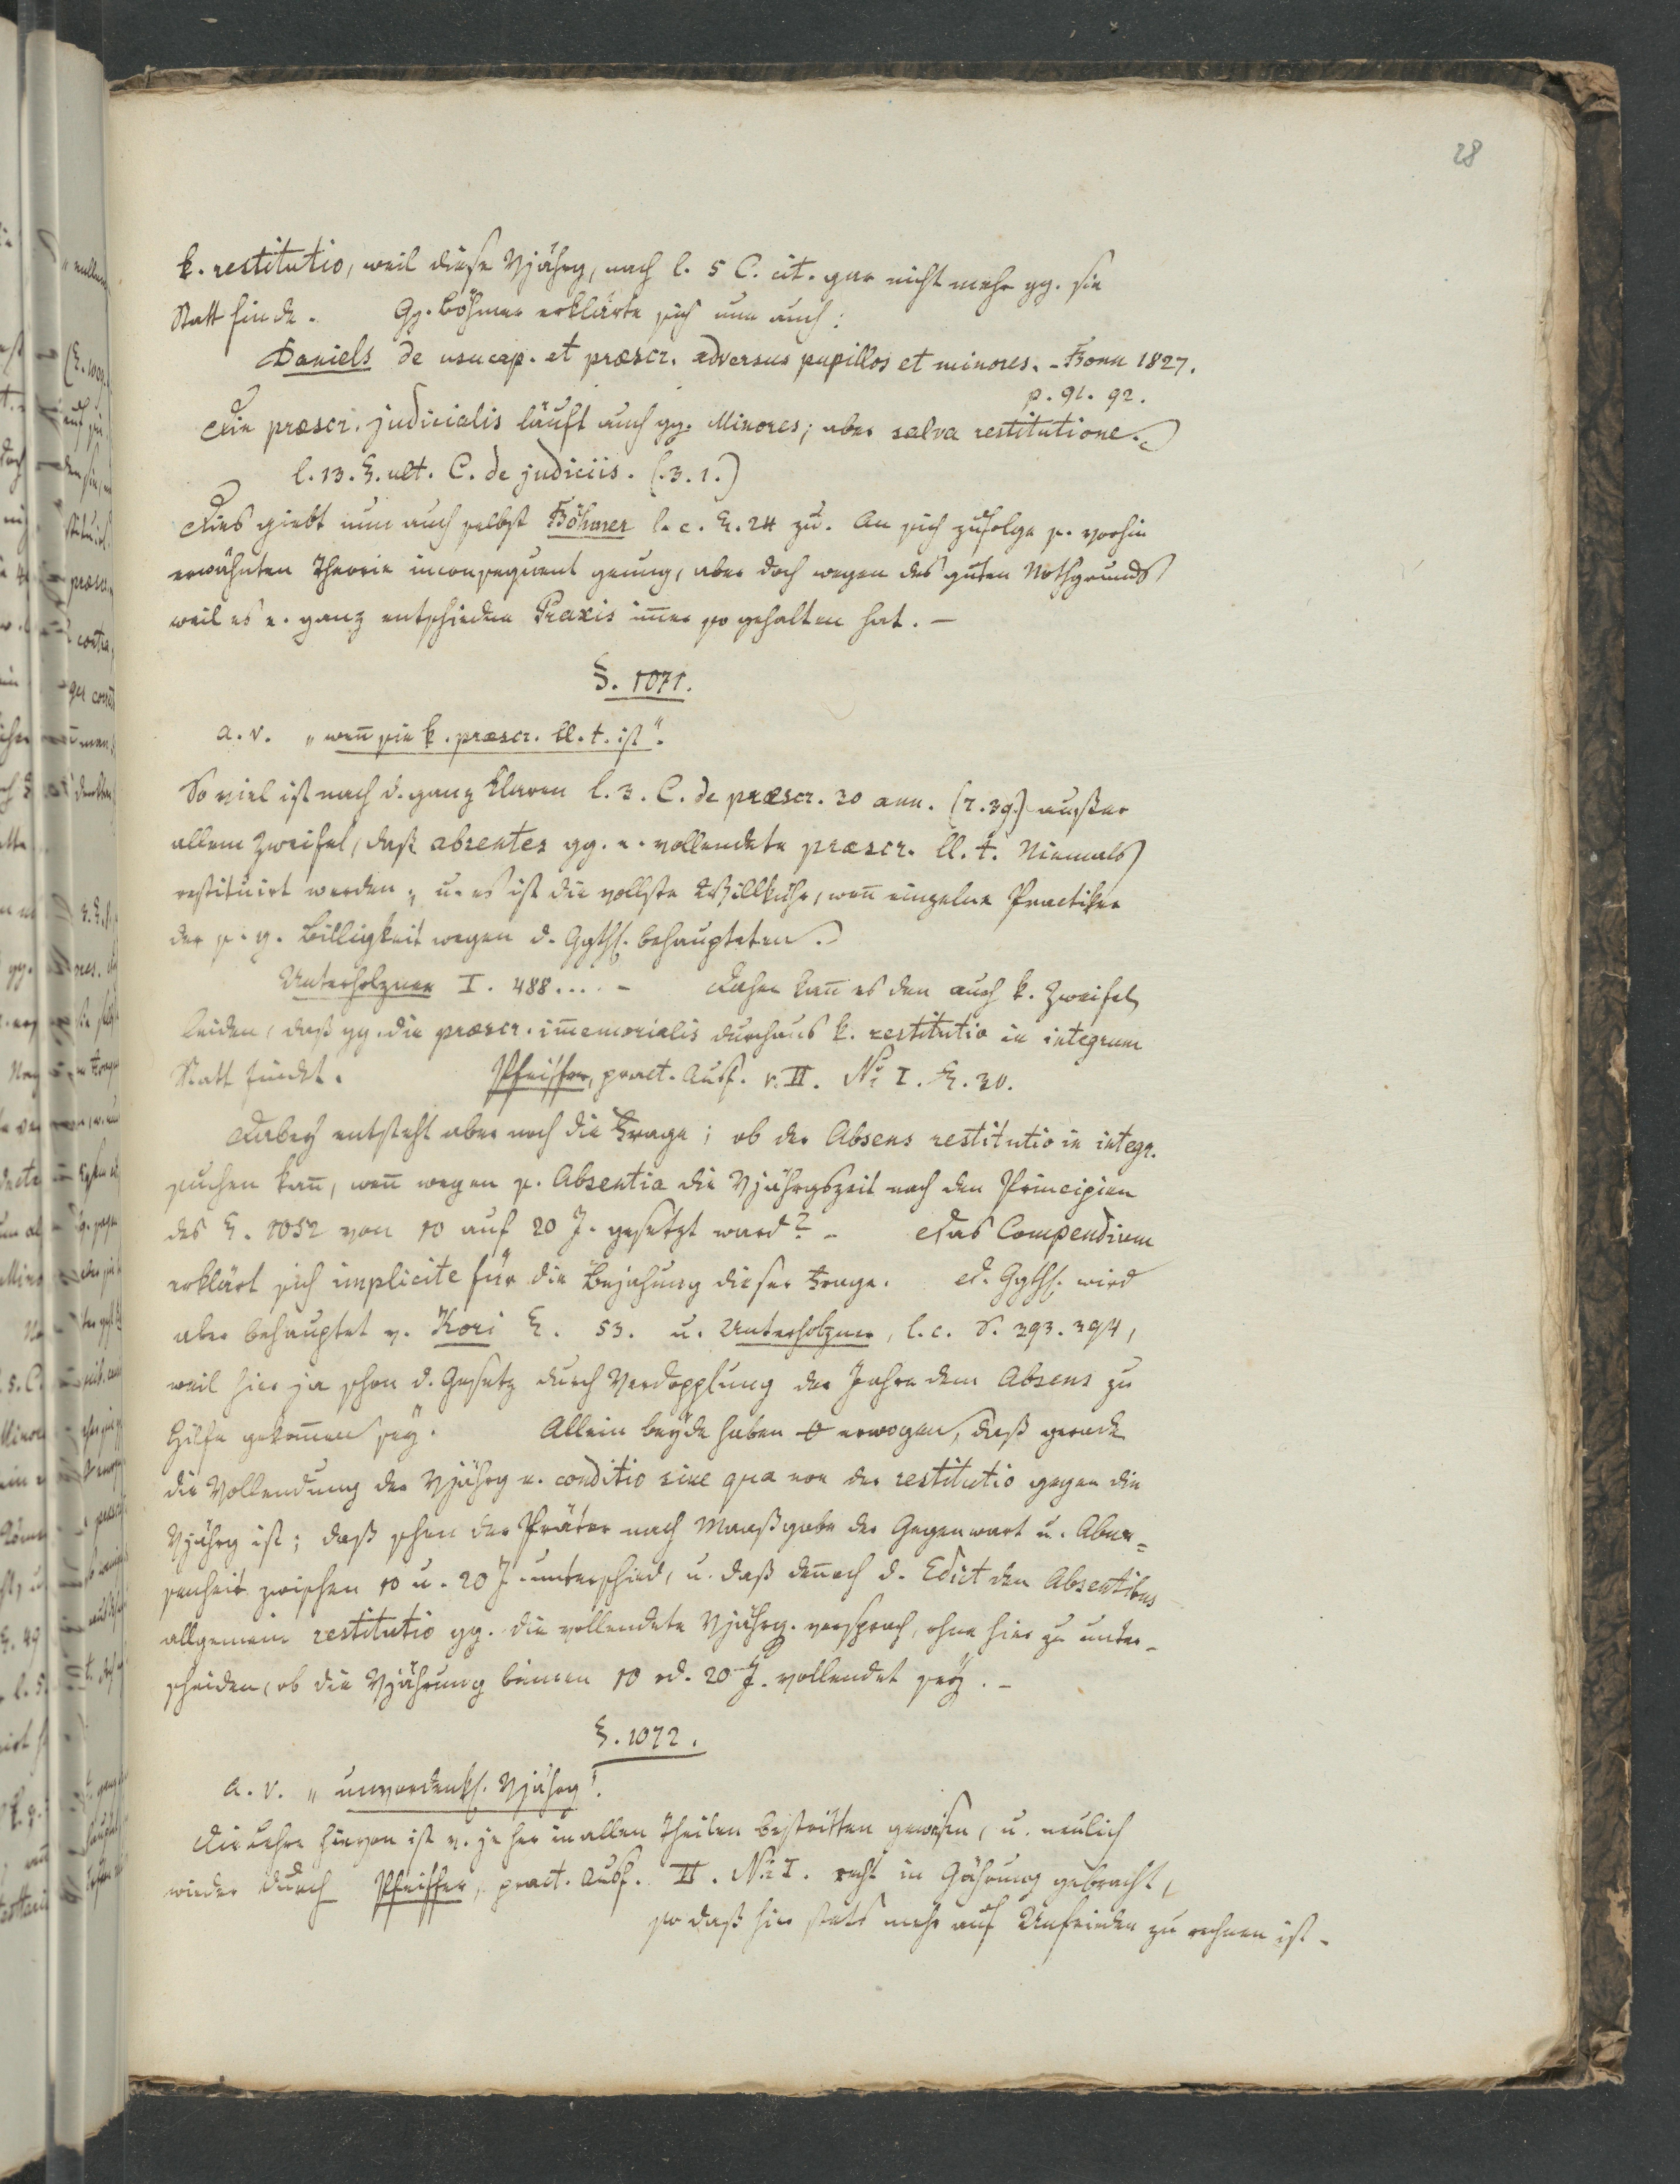 28
k. restitutio, weil diese Vjährg, nach l. 5 C. cit. gar nicht mehr gg. sie
Statt finde. Gg. Böhmer erklärte sich nun auch:
Daniels de usucap. et præscr. adversus pupillos et minores. - Bonn 1827.
p. 91. 92.
Die præscr. judicialis läuft auch gg. Minores; aber salva restitutione.
l. 13. §. ult. C. de judiciis. (3. 1.)
Dies giebt nun auch selbst Böhmer l. c. §. 24 zu. An sich zufolge s. vorhin
erwähnten Theorie inconsequent genug, aber doch wegen des guten Nothgrunds
weil es e. ganz entschiedene Praxis im̄er so gehalten hat. -
§. 1071.
a. v. „wen̄ sie k. præscr. ll. t. ist“.
So viel ist nach d. ganz klaren l. 3. C. de præscr. 30 ann. (7. 39.) außer
allem Zweifel, daß absentes gg. e. vollendete præscr. ll. t. Niemals
restituirt werden, u. es ist die vollste Willkühr, wen̄ einzelne Practiker
der s. g. Billigkeit wegen d. Ggthl. behaupteten.
Unterholzner I. 488.... - Daher kan̄ es den auch k. Zweifel
leiden, daß gg. die præscr. im̄emorialis durchaus k. restitutio in integrum
Statt findet. Pfeiffer, pract. Ausf. v. II. No I. §. 20.
Dabey entsteht aber noch die Frage; ob der Absens restitutio in integr.
suchen kan̄, wen̄ wegen s. Absentia die Vjährgszeit nach den Principien
des §. 1052 von 10 auf 20 J. gesetzt ward? - Das Compendium
erklärt sich implicite für die Bejahung dieser Frage. D. Ggthl. wird
aber behauptet v. Kori §. 53. u. Unterholzner, l. c. S. 393. 394,
weil hier ja schon d. Gesetz durch Verdopplung der Jahre dem Absens zu
Hilfe gekom̄en sey. Allein beyde haben erwogen, daß gerade
die Vollendung der Vjährg e. conditio sine qua non der restitutio gegen die
Vjährg ist; daß schon der Präter nach Maaßgabe der Gegenwart u. Abwe=
senheit zwischen 10 u. 20 J. unterschied, u. daß den̄och d. Edict den Absentibus
allgemein restitutio gg. die vollendete Vjährg. versprach, ohne hier zu unter-
scheiden, ob die Vjährung binnen 10 od. 20 J. vollendet sey. -
§. 1072.
a. v. „unvordenkl. Vjährg“.
Die Lehre hievon ist v. je her in allen Theilen bestritten gewesen, u. neulich
wieder durch Pfeiffer, pract. Ausf. II. No I. recht in Gährung gebracht,
so daß hier stets mehr auf Unfrieden zu rechnen ist.